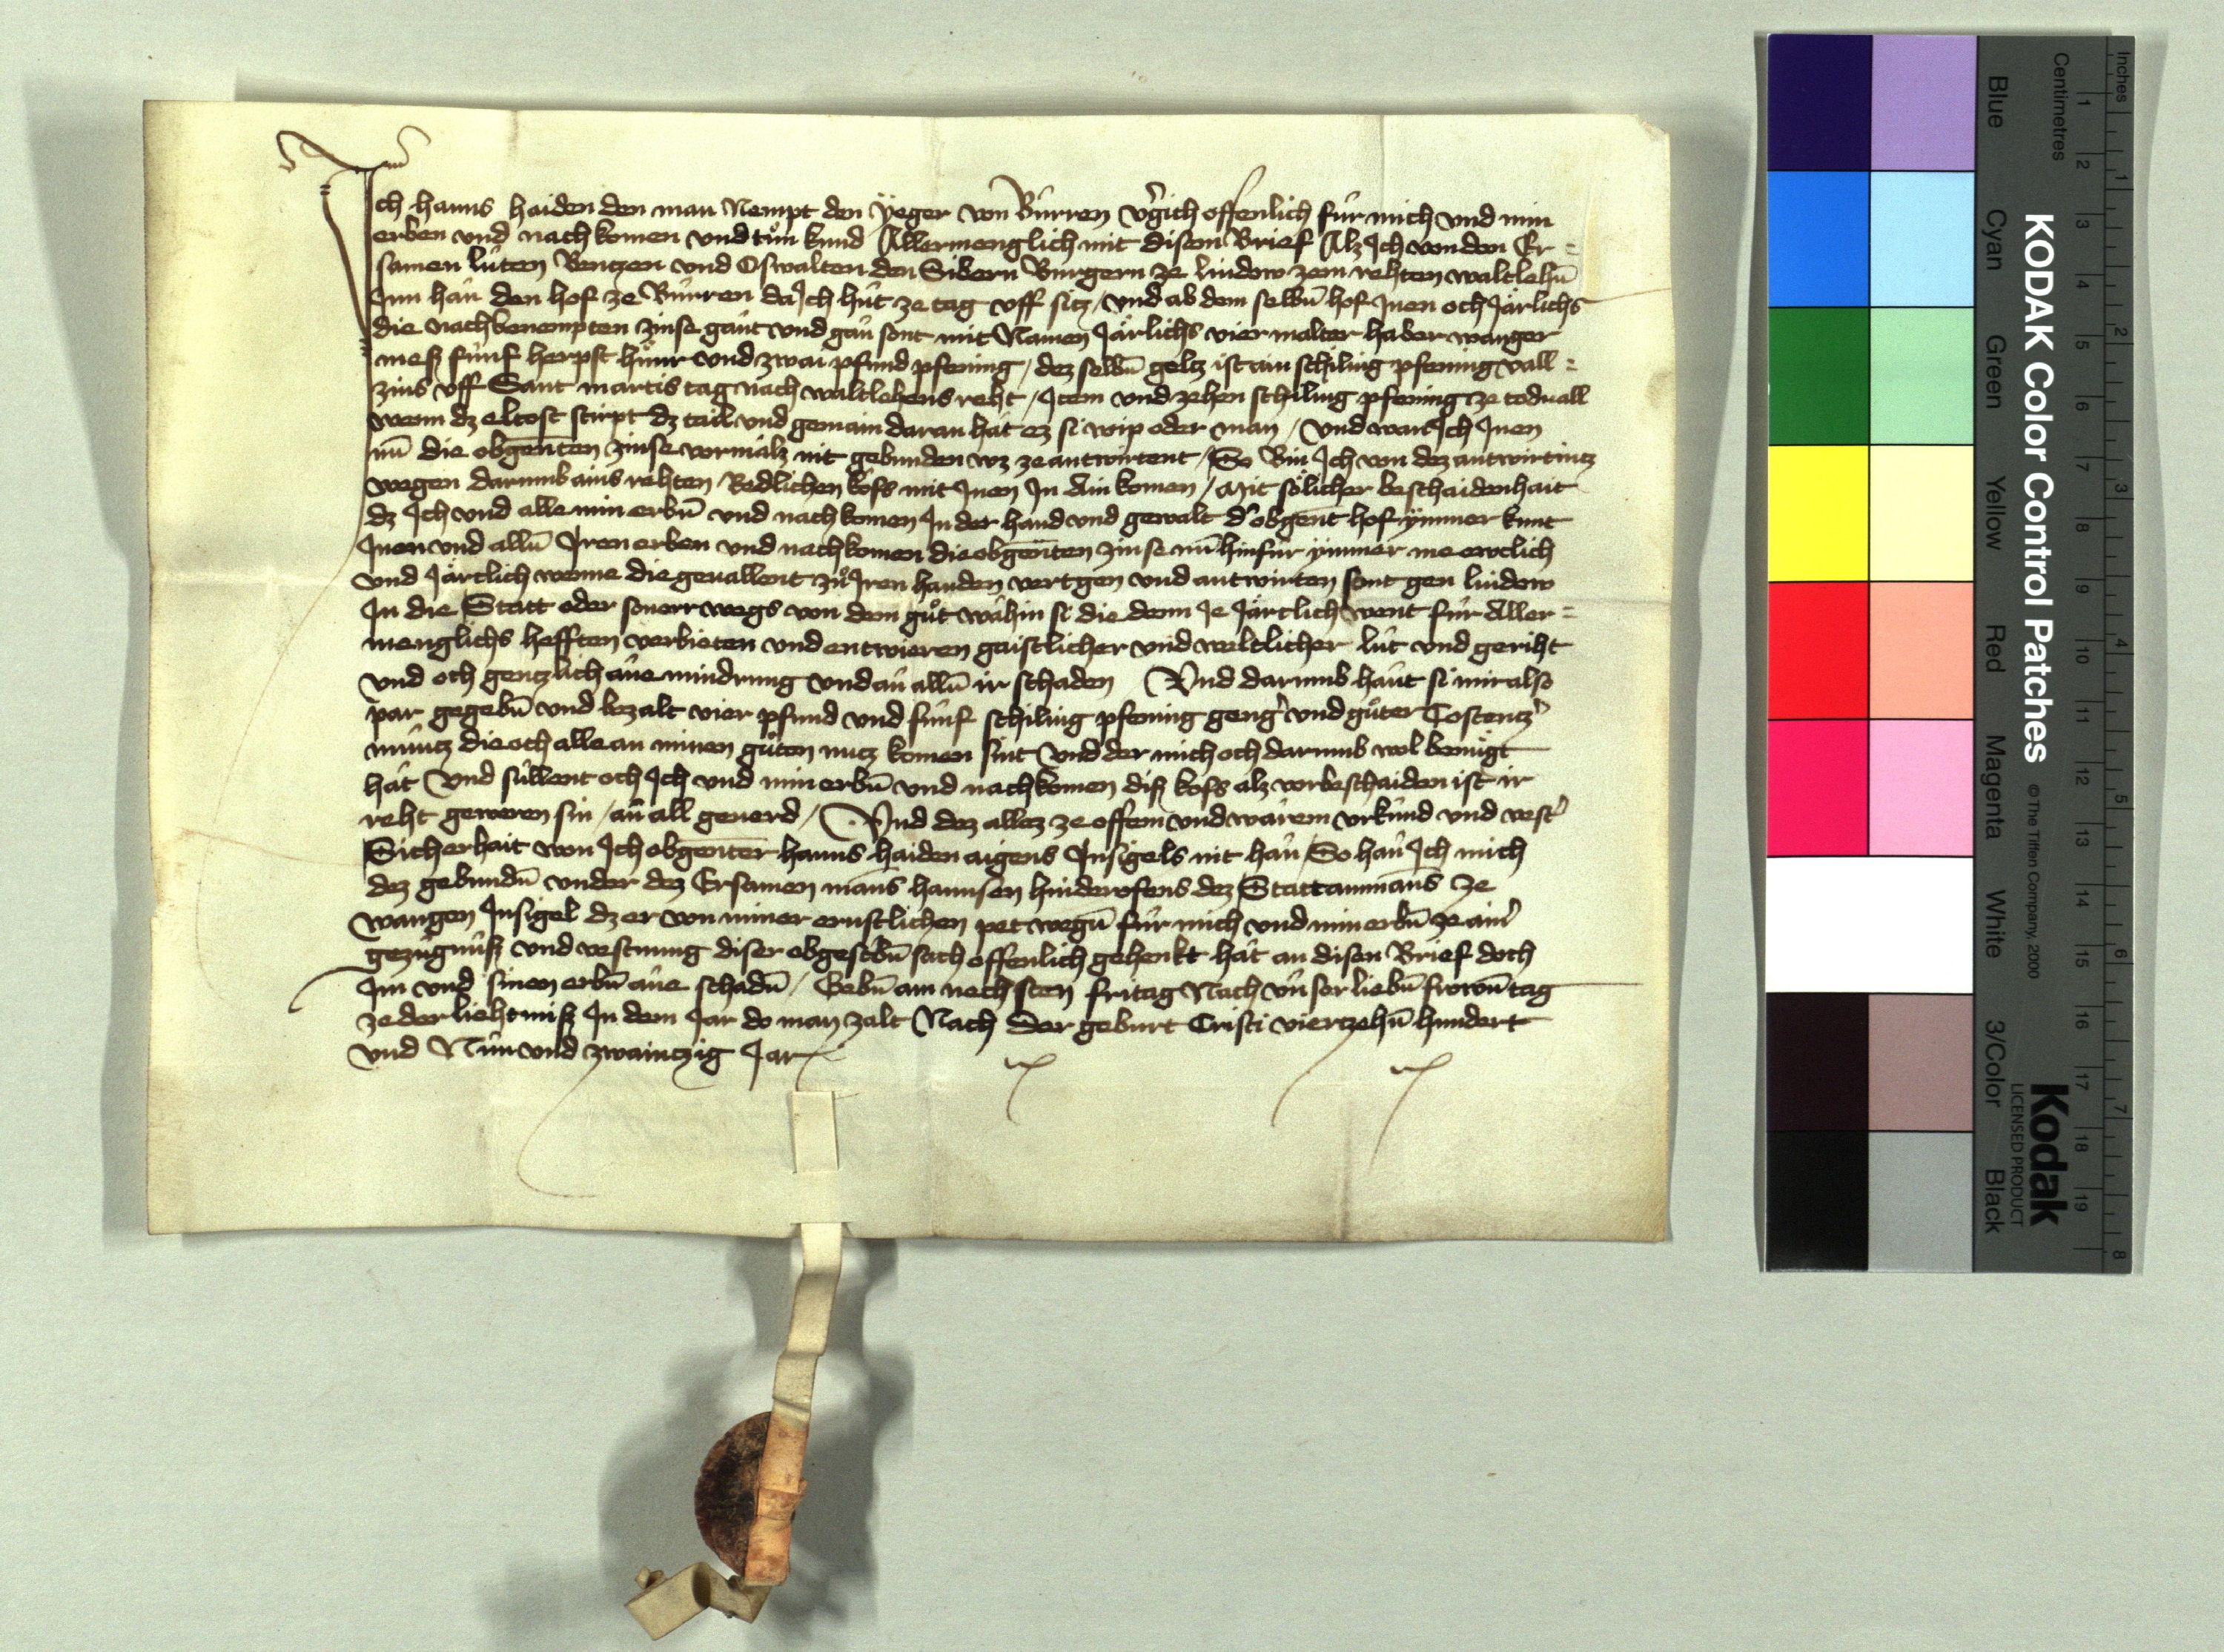 Ich hanns haiden den man Nempt den Yeger von Bürren v'gich offenlich für mich vnd min
erben vnd nach komen vnd tůn kund Allermenglich mit disem Brief Alz Ich von den Er=
samen lüten Bentzen vnd Oswalten den Sibern Burgern ze lindow zem rehten waltlehn̄
Inn han den hof ze Bürren da Ich hüt ze tag vff sitz / vnd ab dem selbn̄ hof Inen och Järlichs
die nachbenempten zinse gant vnd gan sont mit Namen Järlichs vier malter haber wanger
meß fünf herpst hůnr vnd zwai pfund pfening / dez selbn̄ geltz ist ain schiling pfening vall=
zins vff Sant martis tag nach waltlehens reht / Item vnd zehen schiling pfening ze toduall
wenn dz eltost stirpt dz tail vnd gemain daran hat ez si wip oder man / Vnd wan Ich Inen
nū die obgenten zinse vormalz nit gebunden wz ze antwirtent / So Bin Ich von dez antwirtintz
wegen darumb ains rehten Redlichen kofs mit Inen In ain komen / Mit sölicher beschaidenhait
dz Ich vnd alle min erbn̄ vnd nach komen In der hand vnd gewalt d' obgent hof ymmer kunt
Inen vnd alln̄ Iren erben vnd nachkomen die obgenten zinse nū hinfür ymmer me ewclich
vnd Järtlich wenne die geuallent zů Iren handen vertgen vnd antwirten sont gen lindow
In die Statt oder souerr wegs von dem gůt wahin si die denn Je Järtlich went für Aller=
menglichs hefften verbieten vnd entwieren gaistlicher vnd weltlicher lüt vnd geriht
vnd och gentzlich ane mindrung vnd an alln̄ ir schaden Vnd darumb hant si mir also
par gegebn̄ vnd bezalt vier pfund vnd fünf schiling pfening geng' vnd gůter Costentz'
müntz die och alle an minen gůten nutz komen sint Vnd der mich och darumb wol benügt
hat Vnd süllent och Ich vnd min erbn̄ vnd nachkomen diß kofs alz vorbeschaiden ist ir
reht geweren sin / an all geuerd / Vnd dez allez ze offem vnd warem vrkünd vnd vest'
Sicherhait won Ich obgenter hanns haiden aigens Insigels nit han / So han Ich mich
dez gebundn̄ vnder dez Ersamen mans hannsen hinderofens dez Stattammans ze
wangen Insigel dz er von miner ernstlichen pet wegn̄ für mich vnd min erbn̄ ze ain'
gezügnüß vnd vestnung diser obgescbn̄ sach offenlich gehenkt hat an disen Brief doch
Im vnd sinen erbn̄ ane schadn̄ / Gebn̄ am nechsten fritag Nach vnser liebn̄ frown̄ tag
ze der liehtmiß In dem Jar do man zalt Nach der geburt Cristi viertzehn̄ hundert
vnd Nün vnd zwaintzig Jar
Inches
Centimetres
KODAK Color Control Patches
© The Tiffen Company, 2000
Kodak
LICENSED PRODUCT
Blue Cyan Green Yellow Red Magenta White 3/Color Black
1 2 3 4 5 6 7 8 9 10 11 12 13 14 15 16 17 18 19
1 2 3 4 5 6 7 8